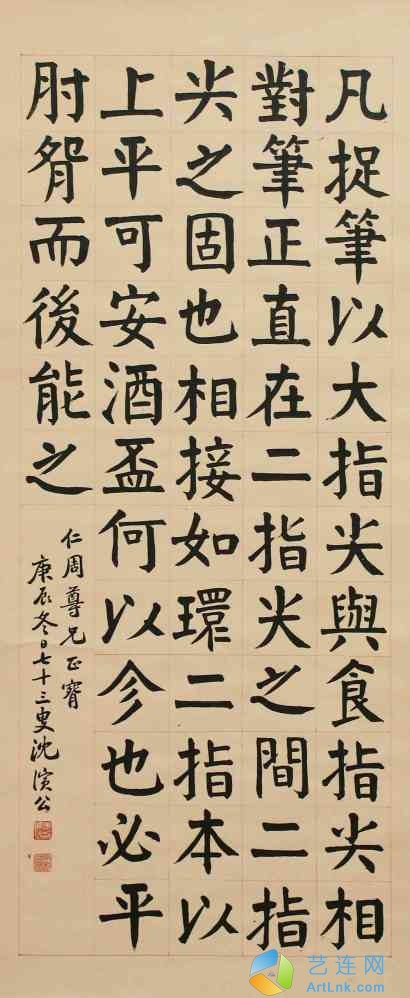 凡捉筆以大指尖與食指尖相
對筆正直在二指尖之間二指
尖之固也相接如環二指本以
上平可安酒盃何以今也必平
肘而後能之
仁周尊兄正
庚辰冬日七十三叟沈演公
艺连网
ArtLnk.com